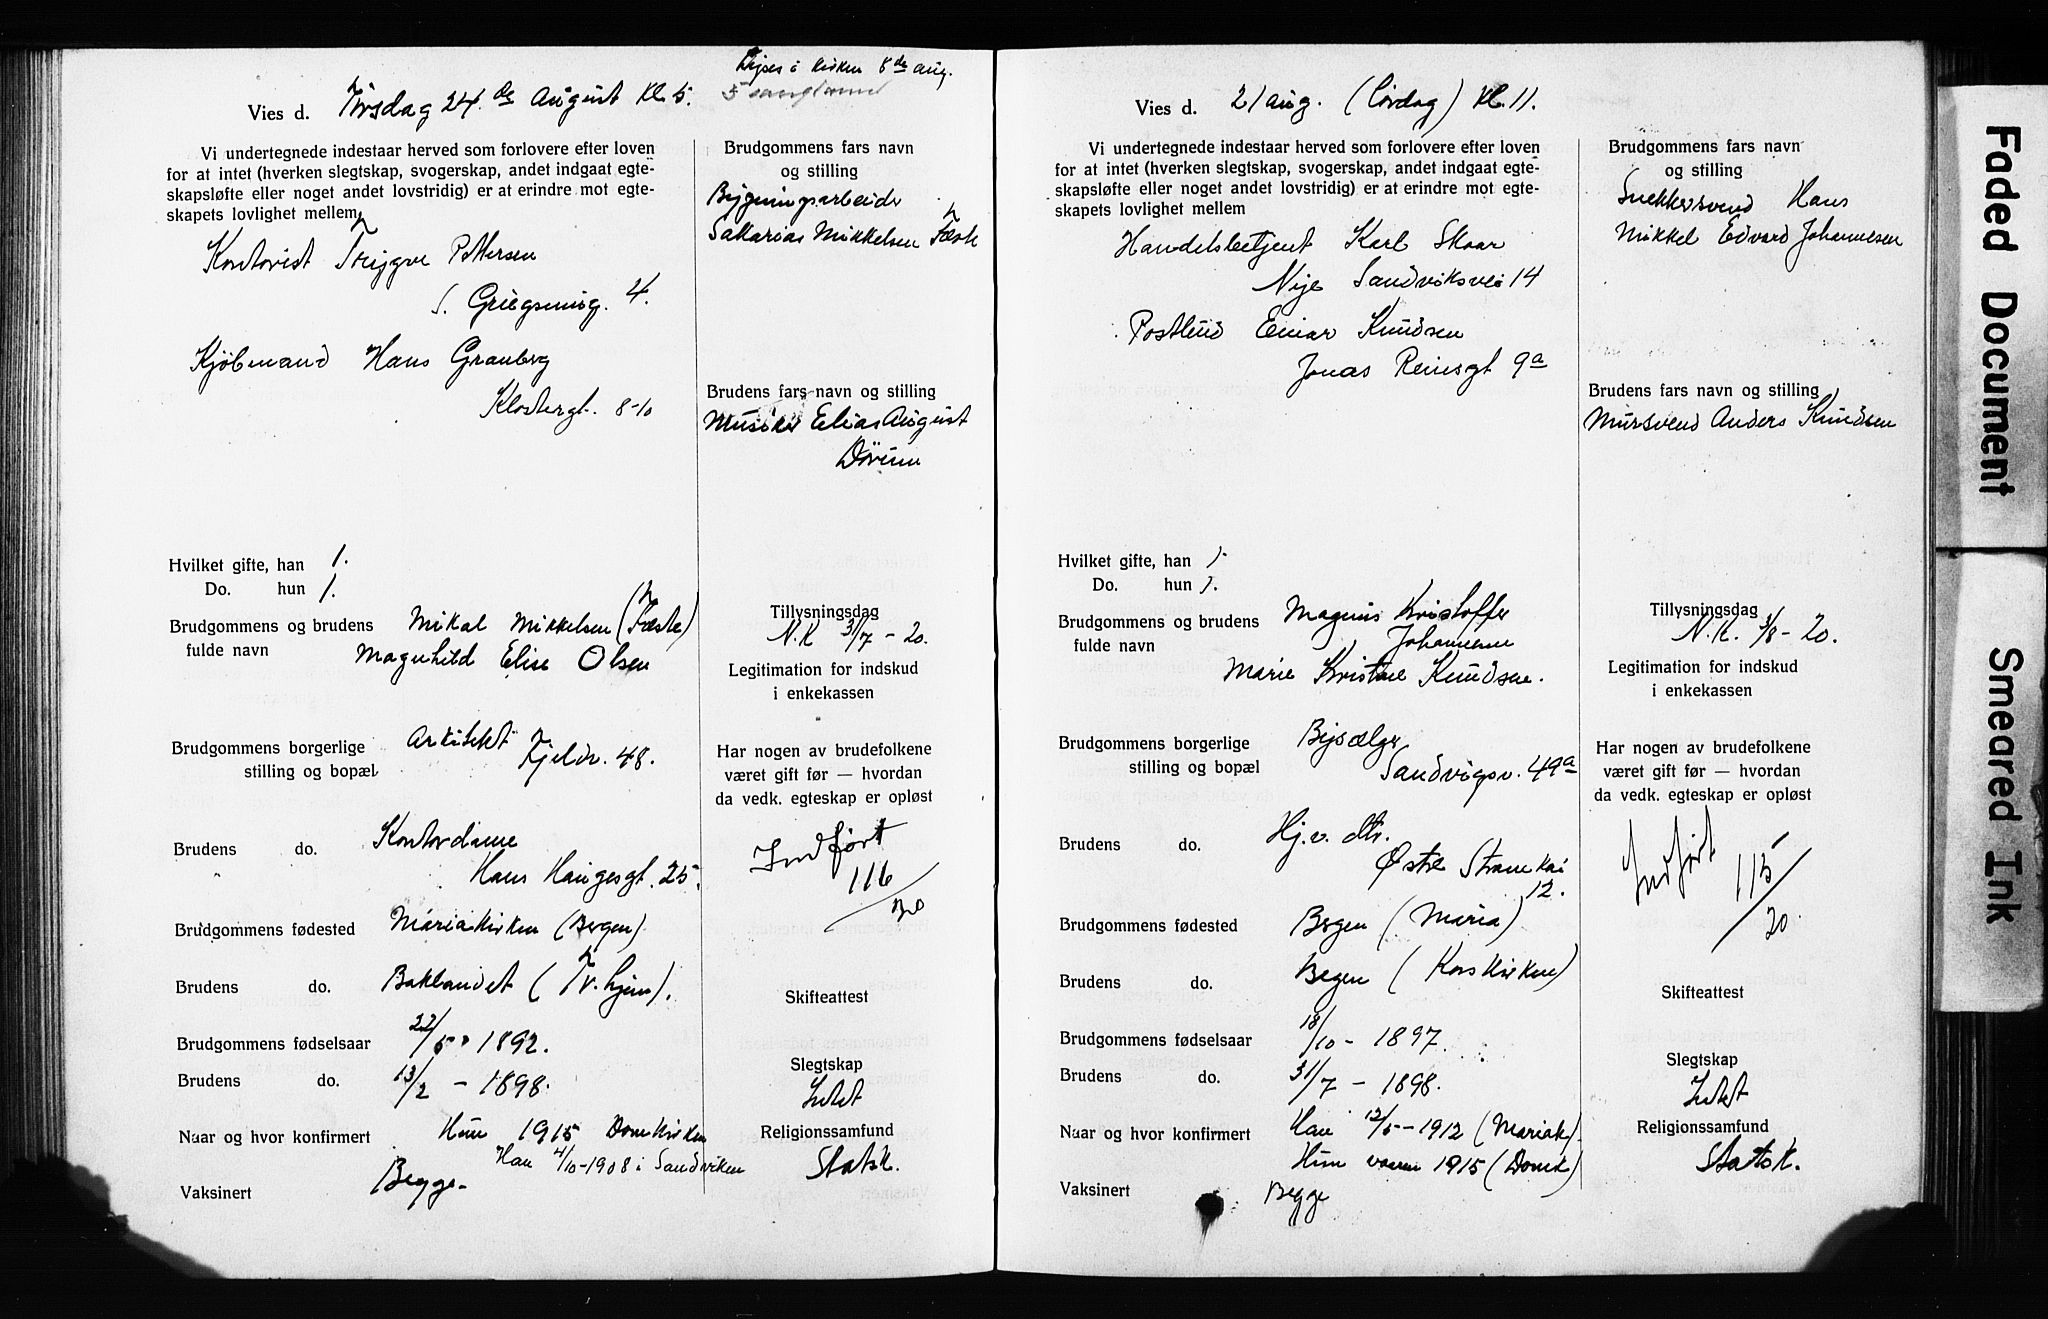 Lyses i kirken 8de aug.
Vies d. Tirsdag 24. de August Kl. 5.
Vi undertegnede indestaar herved som forlovere efter loven
for at intet (hverken slegtskap, svogerskap, andet indgaat egte-
skapsløfte eller noget andet lovstridig) er at erindre mot egte-
skapets lovlighet mellem
Kontorist Trygve Pettersen
S. Griegsmug. 4.
Kjöbmand Hans Granberg
Klostergt. 8-10
Brudgommens fars navn
og stilling
Bygningsarbeider
Sakarias Mikkelsen Tæste
Brudens fars navn og stilling
Musiker Elias August
Dörum
Hvilket gifte, han 1.
Do. hun 1.
Brudgommens og brudens
fulde navn
Mikal Mikkelsen (Tæste)
Magnhild Elise Olsen
Brudgommens borgerlige
stilling og bopæl
Arkitekt Fjeldv. 48.
Brudens do. Kontordame
Hans Haugesgt. 25.
Brudgommens fødested Mariakirken (Bergen)
Brudens do. Baklandet (Tr.hjem).
Brudgommens fødselsaar 22/5 - 1892.
Brudens do. 13/2 - 1898.
Naar og hvor konfirmert Hun 1915 Domkirken
Han 4/10-1908 i Sandviken
Vaksinert Begge
Tillysningsdag
N.K 31/7 - 20.
Legitimation for indskud
i enkekassen
Har nogen av brudefolkene
været gift før — hvordan
da vedk. egteskap er opløst
Indført
116/20
Skifteattest
Slegtskap
Intet
Religionssamfund
Statsk.
Vies d. 21 aug. (Lördag) Kl. 11.
Vi undertegnede indestaar herved som forlovere efter loven
for at intet (hverken slegtskap, svogerskap, andet indgaat egte-
skapsløfte eller noget andet lovstridig) er at erindre mot egte-
skapets lovlighet mellem
Handelsbetjent Karl Skaar
Nye Sandviksvei 14
Postbud Einar Knudsen
Jonas Reinsgt 9a
Brudgommens fars navn
og stilling
Snekkersvend Hans
Mikkel Edvard Johannesen
Brudens fars navn og stilling
Mursvend Anders Knudsen
Hvilket gifte, han 1.
Do. hun 1.
Brudgommens og brudens
fulde navn
Magnus Kristoffer
Johannesen
Marie Kristine Knudsen.
Brudgommens borgerlige
stilling og bopæl
Bysælger
Sandvigsv. 49a
Brudens do. Hj.v. dtr.
Østre Strankai
12.
Brudgommens fødested Bergen (Maria)
Brudens do. Bergen (Korskirken)
Brudgommens fødselsaar 18/10 - 1897.
Brudens do. 31/7 - 1898.
Naar og hvor konfirmert Han 12/5 - 1912 (Mariak)
Hun vaaren 1915 (Domk)
Vaksinert Begge
Tillysningsdag
N.K. 3/8 - 20.
Legitimation for indskud
i enkekassen
Har nogen av brudefolkene
været gift før — hvordan
da vedk. egteskap er opløst
Indført
115/20.
Skifteattest
Slegtskap
Intet
Religionssamfund
Statsk.
Faded Document
Smeared Ink